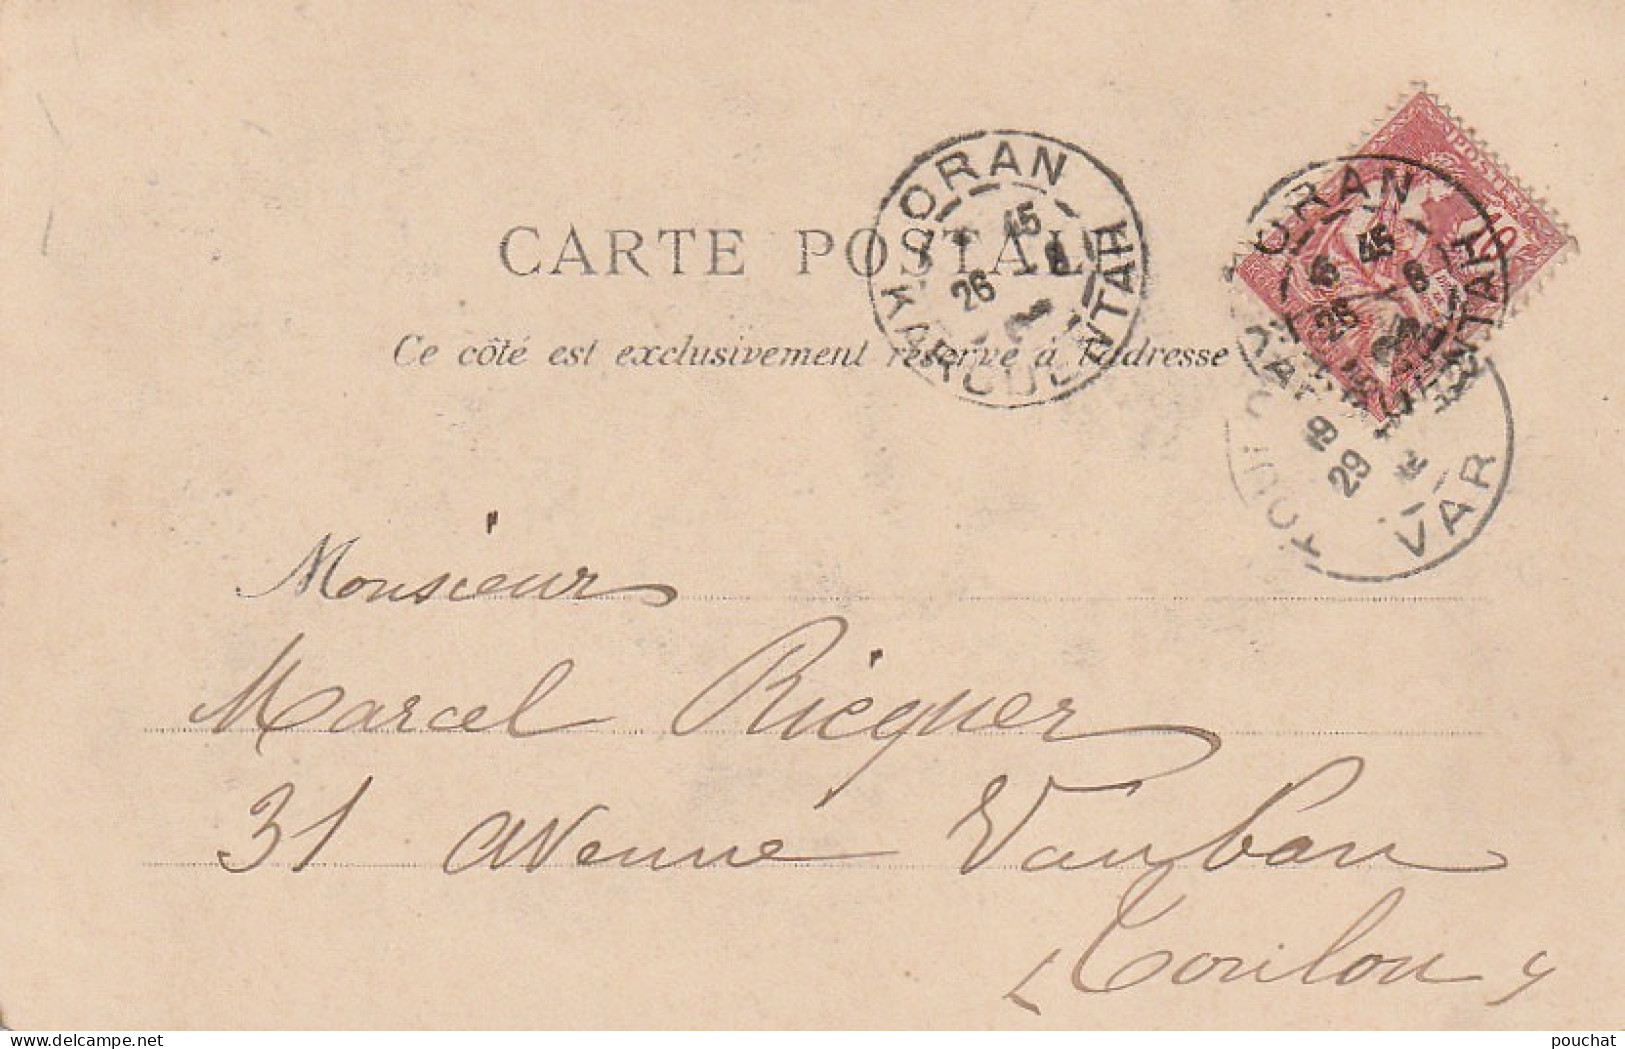 CARTE POSTALE
Ce côté est exclusivement réservé à l'adresse
ORAN
KARGUENTAH
45
26
8
POSTES
10
ORAN
KARGUENTAH
6 45
26 8
TOULON
VAR
29
Monsieur
Marcel Ricquer
31 avenue Vauban
Toulon
delcampe.net
pouchat